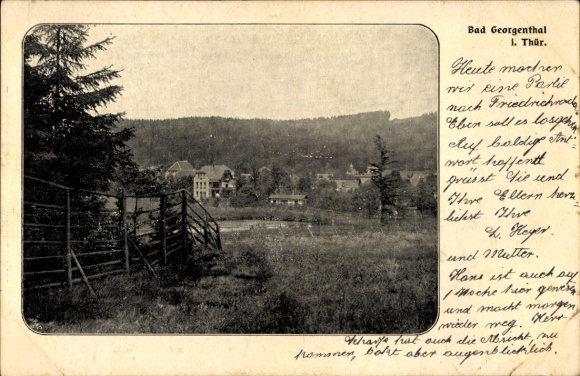 Bad Georgenthal
i. Thür.
Heute machen
wir eine Partie
nach Friedrichroda
Eben soll es losgehen
Auf baldige Ant
wort hoffend
grüsst Sie und
Ihre Eltern herz
lichst Ihre
L. Heyer.
und Mutter.
Hans ist auch auf
1 Woche hier gewesen
und macht morgen
wieder weg. Herr
hat auch die Absicht, zu
kommen, aber augenblicklich.